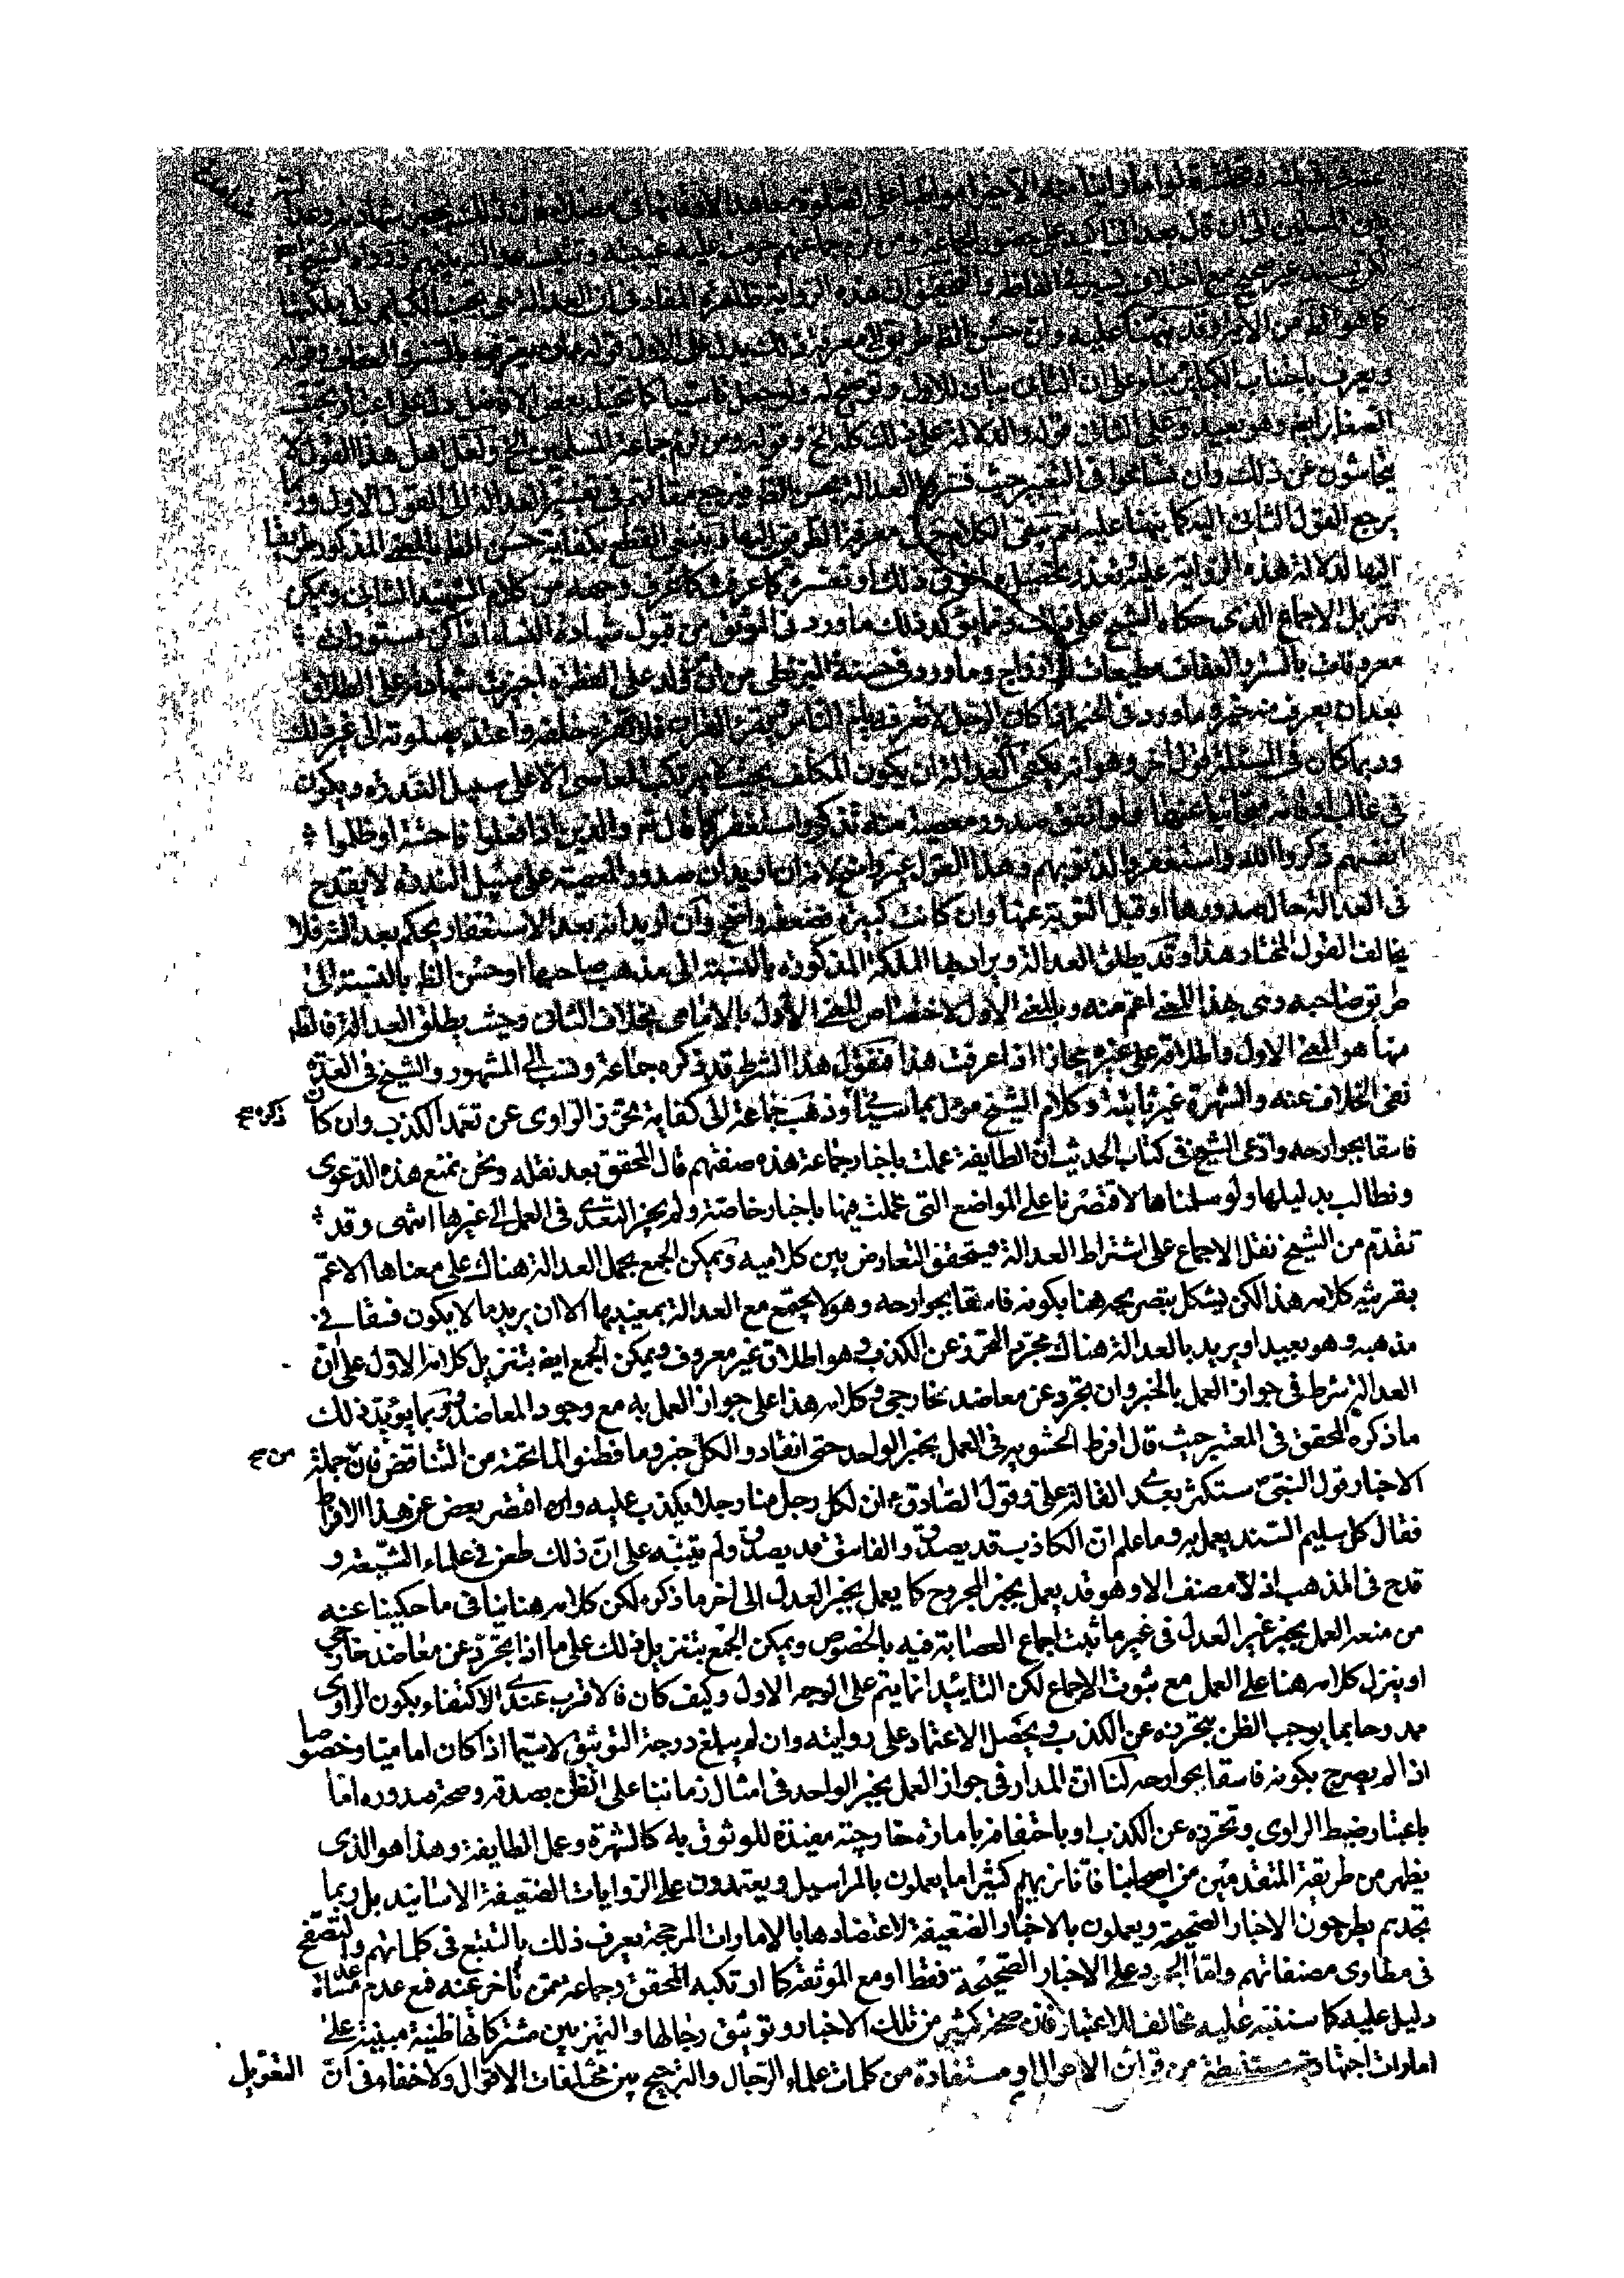 بين المسلمين الى ان قال
لكن بسند غير صحيح مع اختلاف في الفاظه والتحقيق ان هذه الرواية ظاهرة المفاد في ان العدالة هي تجنب الكباير
كما هو الظ من الاخبار وقد نبهنا عليه وان حسن الظ طريق الى معرفة ذلك يدل على الاول قوله
ويعرف باجتناب الكباير بناء على ان الثاني بيان للاول وتوضيح له
الصغاير ايضا وهو بعيد وعلى الثاني قوله والدلالة على ذلك كله الخ وقوله ومن لزم جماعة المسلمين الخ ولعل اهل هذا القول لا
يتحاشون عن ذلك وان تسامحوا في التعبير حيث فسروا العدالة بحسن الظ فيرجع مقالتهم في تفسير العدالة الى القول الاول وربما
يرجع القول الثاني اليه كما نبهنا عليه نعم يبقى الكلام في معرفة الطريق اليها وينبغي القطع بكفاية حسن الظ بالمعنى المذكور طريقا
اليها لدلالة هذه الرواية عليه وتعذر تحصيل ما فوق ذلك او تعسره كما عرفت كما عرف وجهه من كلام الشهيد الثاني ويمكن
تنزيل الاجماع الذي حكاه الشيخ على ذلك ومما يؤكد ذلك ما ورد في الموثق من قبول شهادة النساء اذا كن مستورات
معروفات بالستر والعفاف مطيعات للازواج وما ورد في حسنة البزنطي من ان من ولد على الفطرة اجيزت شهادته على الطلاق
بعد ان يعرف منه خير وما ورد في الخبر اذا كان الرجل لا تعرفه يؤم الناس يقرء القران فلا تقرء خلفه واعتد بصلوته الى غير ذلك
وربما كان في المسئلة قول اخر وهو انه يكفي في العدالة ان يكون المكلف بحيث لا يرتكب المعاصي الا على سبيل الندرة ويكون
في غالب احواله مجانبا عنها فلو اتفق صدور معصية منه تذكر واستغفر كما قال تم والذين اذا فعلوا فاحشة او ظلموا
انفسهم ذكروا الله واستغفروا لذنوبهم وهذا القول غير واضح لانه ان اريد ان صدور المعصية على سبيل الندرة لا يقدح
في العدالة حال صدورها او قبل التوبة عنها وان كانت كبيرة فضعفه واضح وان اريد انه بعد الاستغفار يحكم بعدالته فلا
يخالف القول المختار هذا وقد يطلق العدالة ويراد بها الملكة المذكورة بالنسبة الى مذهب صاحبها او حسن الظ بالنسبة الى
طريق صاحبه وهي بهذا المعنى اعم منه وبالمعنى الاول لاختصاص المعنى الاول بالامامي بخلاف الثاني وحيث يطلق العدالة فالظ
منها هو المعنى الاول واطلاقه على غيره مجاز اذا عرفت هذا فنقول هذا الشرط قد ذكره جماعة ونسب الى المشهور والشيخ في العدة
نفى الخلاف عنه والشهرة غير ثابتة وكلام الشيخ مؤل بما سيأتى وذهب جماعة الى كفاية تحرز الراوى عن تعمد الكذب وان كان ذكره صح
فاسقا بجوارحه وادعى الشيخ في كتاب الحديث ان الطايفة عملت باخبار جماعة هذه صفتهم قال المحقق بعد نقله ونحن نمنع هذه الدعوى
ونطالب بدليلها ولو سلمناها لاقتصرنا على المواضع التى عملت فيها باخبار خاصة ولم يجز التعدي في العمل الى غيرها انتهى وقد
تقدم من الشيخ نقل الاجماع على اشتراط العدالة فيتحقق التعارض بين كلاميه ويمكن الجمع بحمل العدالة هناك على معناها الاعم
بقرينة كلامه هذا لكن يشكل بتصريحه هنا بكونه فاسقا بجوارحه وهو لا يجتمع مع العدالة بمعنييها الا ان يريد ما لا يكون فسقا في
مذهبه وهو بعيد او يريد بالعدالة هناك مجرد التحرز عن الكذب وهو اطلاق غير معروف ويمكن الجمع ايضا بتنزيل كلامه الاول على ان
العدالة شرط في جواز العمل بالخبر وان تجرد عن معاضد خارجي وكلامه هذا على جواز العمل به مع وجود المعاضد وربما يؤيد ذلك
ما ذكره المحقق في المعتبر حيث قال افرط الحشوية في العمل بخبر الواحد حتى انقادوا لكل خبر وما فطنوا لما تحته من التناقض فان من جملة من صح
الاخبار قول النبي ص ستكثر بعدي القالة على وقول الصادق ع ان لكل رجل منا رجلا يكذب عليه وان اقتصر بعض عن هذا الافراط
فقال كل سليم السند يعمل به وما علم ان الكاذب قد يصدق والفاسق قد يصدق ولم يتنبه على ان ذلك طعن في علماء الشيعة و
قدح في المذهب اذ لا مصنف الا وهو قد يعمل بخبر المجروح كما يعمل بخبر العدل الى اخر ما ذكره لكن كلامه هنا ينافي ما حكينا عنه
من منعه العمل بخبر غير العدل في غير ما ثبت اجماع العصابة فيه بالخصوص ويمكن الجمع بتنزيل ذلك على ما اذا تجرد عن معاضد خارجي
او ينزل كلامه هنا على العمل مع ثبوت الاجماع لكن التاييد انما يتم على الوجه الاول وكيف كان فالاقرب عندي الاكتفاء بكون الراوى
ممدوحا بما يوجب الظن بتحرزه عن الكذب ويحصل الاعتماد على روايته وان لم يبلغ درجة التوثيق لا سيما اذا كان اماميا وخصوصا
اذا لم يصرح بكونه فاسقا بجوارحه لنا ان المدار في جواز العمل بخبر الواحد في امثال زماننا على الظن بصدقه وصحة صدوره اما
باعتبار ضبط الراوى وتحرزه عن الكذب او باحتفافه بامارة خارجية مفيدة للوثوق به كالشهرة وعمل الطايفة وهذا هو الذى
يظهر من طريقة المتقدمين من اصحابنا فانا نريهم كثيرا ما يعملون بالمراسيل ويعتمدون على الروايات الضعيفة الاسانيد بل ربما
تجديهم يطرحون الاخبار الصحيحة ويعملون بالاخبار الضعيفة لاعتضادها بالامارات المرجحة يعرف ذلك بالتتبع في كلماتهم والتصفح
في مطاوى مصنفاتهم واما الجمود على الاخبار الصحيحة فقط او مع الموثقة كما ارتكبه المحقق وجماعة ممن تاخر عنه فمع عدم مساعدة
دليل عليه كما سننبه عليه مخالف للاعتبار فان صحة كثير من تلك الاخبار وتوثيق رجالها والتميز بين مشتركاتها ظنية مبنية على
امارات اجتهادية مستنبطة من قرائن الاحوال او مستفادة من كلمات علماء الرجال والترجيح بين مختلفات الاقوال ولا خفاء في ان التعويل